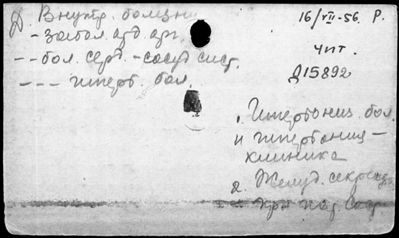 Д Внутр. болезни
- забол. отд. орг.
-- бол. серд.-сосуд. сист.
--- гиперт. бол.
16/VII-56. Р.
Чит.
Д15892
1. Гипертонич. бол.
и гипертонич-
клиника
2. Желуд. секреция
при